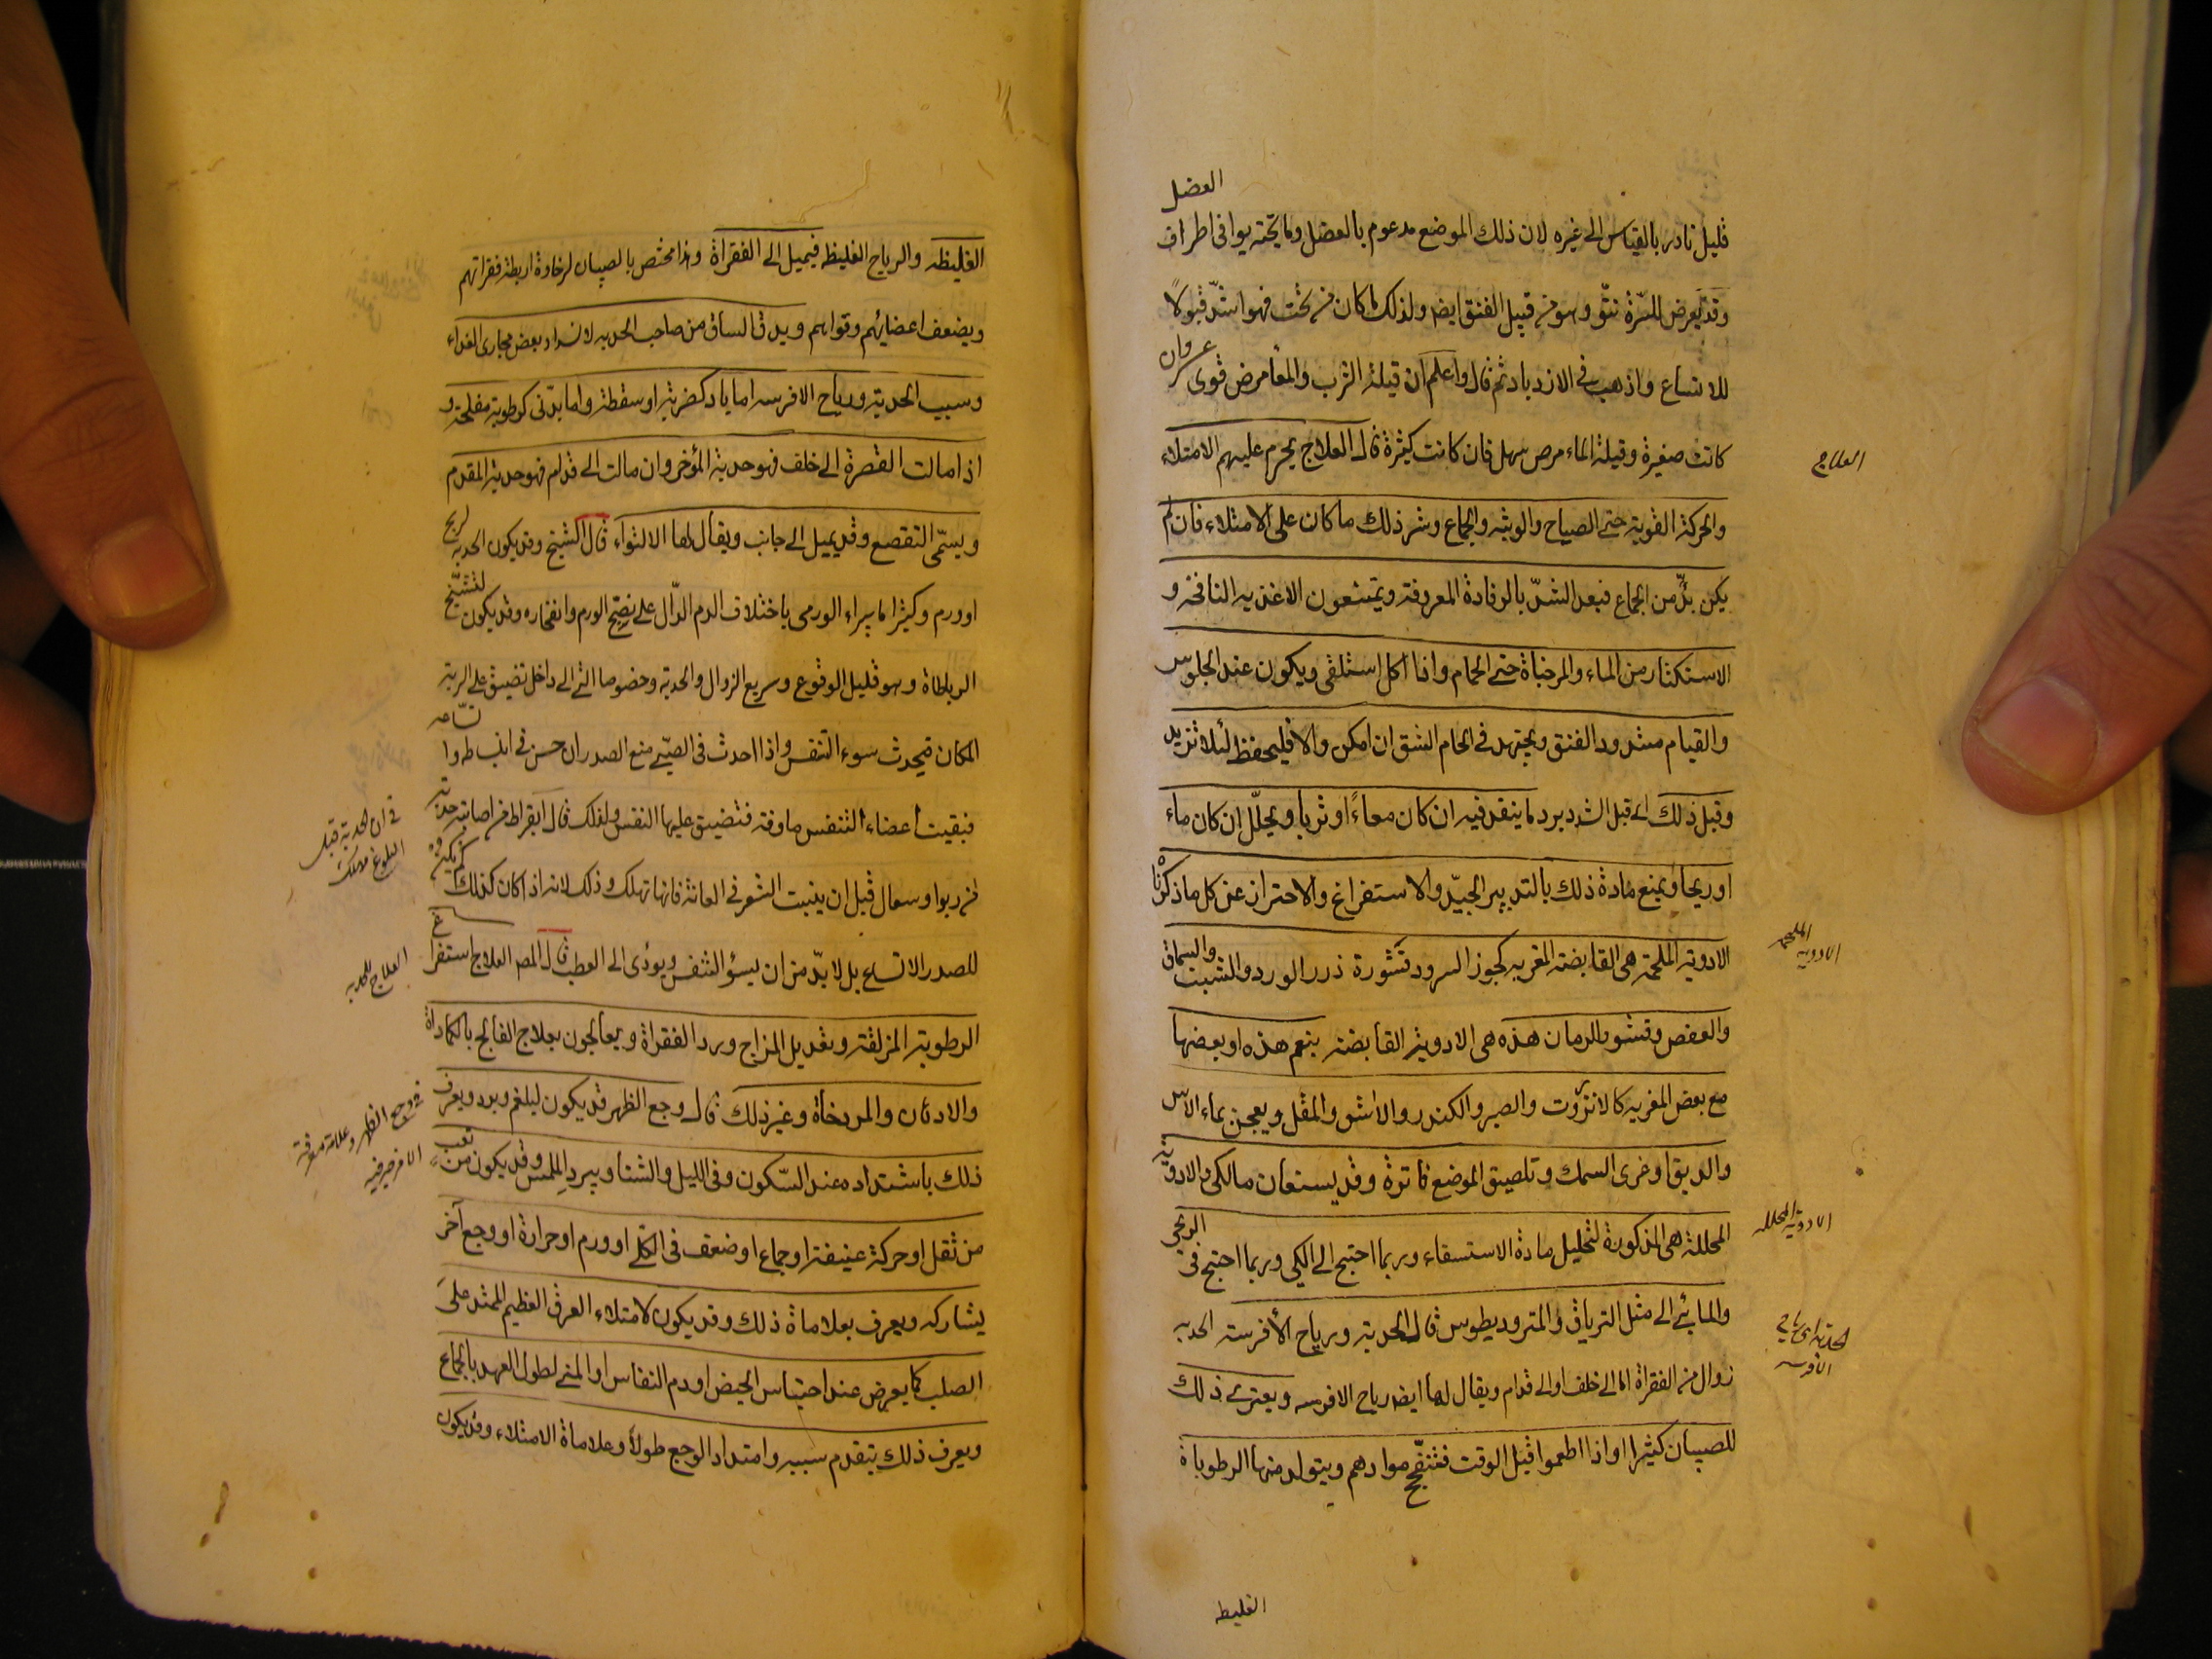 العضل
قليل نادر بالقياس الى غيره لان ذلك الموضع مدعوم بالعضل وما تحته يوافى اطراف
وقد يعرض للسرة نتو وهو من قبيل الفتق ايض ولذلك لما كان من تحت فهو اشد قبولا
للاتساع واذهب فى الازدياد ثم قال واعلم ان قيلة الثرب والمعا مرض قوى عسر وان
كانت صغيرة وقيلة الماء مرض سهل فان كانت كثيرة قال العلاج يحرم عليهم الامتلاء
العلاج
والحركة القوية حتى الصياح والوثبه والجماع وشر ذلك ما كان على الامتلاء فان لم
يكن بد من الجماع فبعد الشد بالرفادة المعروفة ويمتنعون الاغذيه النافخة و
الاستكثار من الماء والمرخياة حتى الحمام واذا اكل استلقى ويكون عند الجلوس
والقيام مشدود الفتق ويجتهد فى الحام الشق ان امكن والا فليحفظ لئلا تزيد
وقبل ذلك اى قبل الشد يرد ما ينقد فيه ان كان معاءً او ثربا ويحلل ان كان ماء
او ريحا ويمنع مادة ذلك بالتدبير الجيد والاستفراغ والاحتراز عن كل ما ذكرناه
الادوية الملحمة هى القابضة المغريه كجوز السرو وقشوره ذرر الورد والشبت والسماق
الادوية الملحمة
والعفص وقشور الرمان هذه هى الادوية القابضة ينعم هذه او بعضها
مع بعض المغريه كالانزروت والصبر والكندر والاشق والمقل ويعجن بماء الاس
والدبق او غرى السمك وتلصيق الموضع فاترة وقد يستعان مالكى والادوية
المحللة هى المذكورة لتحليل مادة الاستسقاء وربما احتيج الى الكى وربما احتيج فى الريحى
الادوية المحلله
والمائى الى مثل الترياق والمتروديطوس قال الحدبة ورياح الأفرسة الحدبه
الحدبة اى رياح الافرسه
زوال من الفقراة اما الى خلف او الى قدام ويقال لها ايض رياح الافرسه ويعترى ذلك
للصبيان كثيرا او اذا اطعموا قبل الوقت فتفجج موادهم ويتولد منها الرطوباة
الغليظه
الغليظه والرياح الغليظه فيميل الى الفقراة وهذا مختص بالصبيان لرخاوة اربطة فقراتهم
ويضعف اعضائهم وقواهم ويدق الساق من صاحب الحدبه لانسداد بعض مجارى الغداء
وسبب الحدبة ورياح الافرسه اما باد كضربة او سقطة واما بدنى كرطوبة مفلجة و
اذا مالت الفقرة الى خلف فهو حدبة المؤخر وان مالت الى قدام فهو حدبة المقدم
ويسمى التقصع وقد يميل الى جانب ويقال لها الالتواء قال الشيخ وقد يكون الحدبه لريح
او ورم وكثيرا ما يبراء الورمى باختلاف الدم الدال على نضج الورم وانفجاره وقد يكون لتشنج
الرباطاة وهو قليل الوقوع وسريع الزوال والحدبة وخصوصا التى الى داخل تضيق على الرية
المكان فيحدث سوء التنفس واذا احدث فى الصبى منع الصدر ان حسن فى انبساطه واتساعه
فبقيت اعضاء التنفس ماوفه فتضيق عليها النفس ولذلك قال ابقراط من اصابته حدبة
فى ان الحدبة قبل البلوغ مهلك
من ربو او سعال قبل ان ينبت الشعر فى العانة فانها تهلك وذلك لانه اذا كان كذلك لم يكن
للصدر الاتساع بل لا بد من ان يسوؤ التنفس ويودى الى العطب قال المص العلاج استفراغ
العلاج للحدبه
الرطوبة المزلقة وتعديل المزاج ورد الفقراة ويعالجون بعلاج الفالج بالكماداة
والادهان والمروخاة وغير ذلك قال وجع الظهر قد يكون لبلغم وبرد ويعرف
فى وجع الظهر وعلامة معرفة
ذلك باشتداده عند السكون وفى الليل والشتا وببرد الملمس وقد يكون من تعب
من ثقل او حركة عنيفة او جماع او ضعف فى الكلى او ورم او حرارة او وجع آخر
يشاركه ويعرف بعلاماة ذلك وقد يكون لامتلاء العرق العظيم الممتد على
الصلب كما يعرض عند احتباس الحيض او دم النفاس او المنى لطول العهد بالجماع
ويعرف ذلك بتقدم سببه وامتداد الوجع طولاً وعلاماة الامتلاء وقد يكون